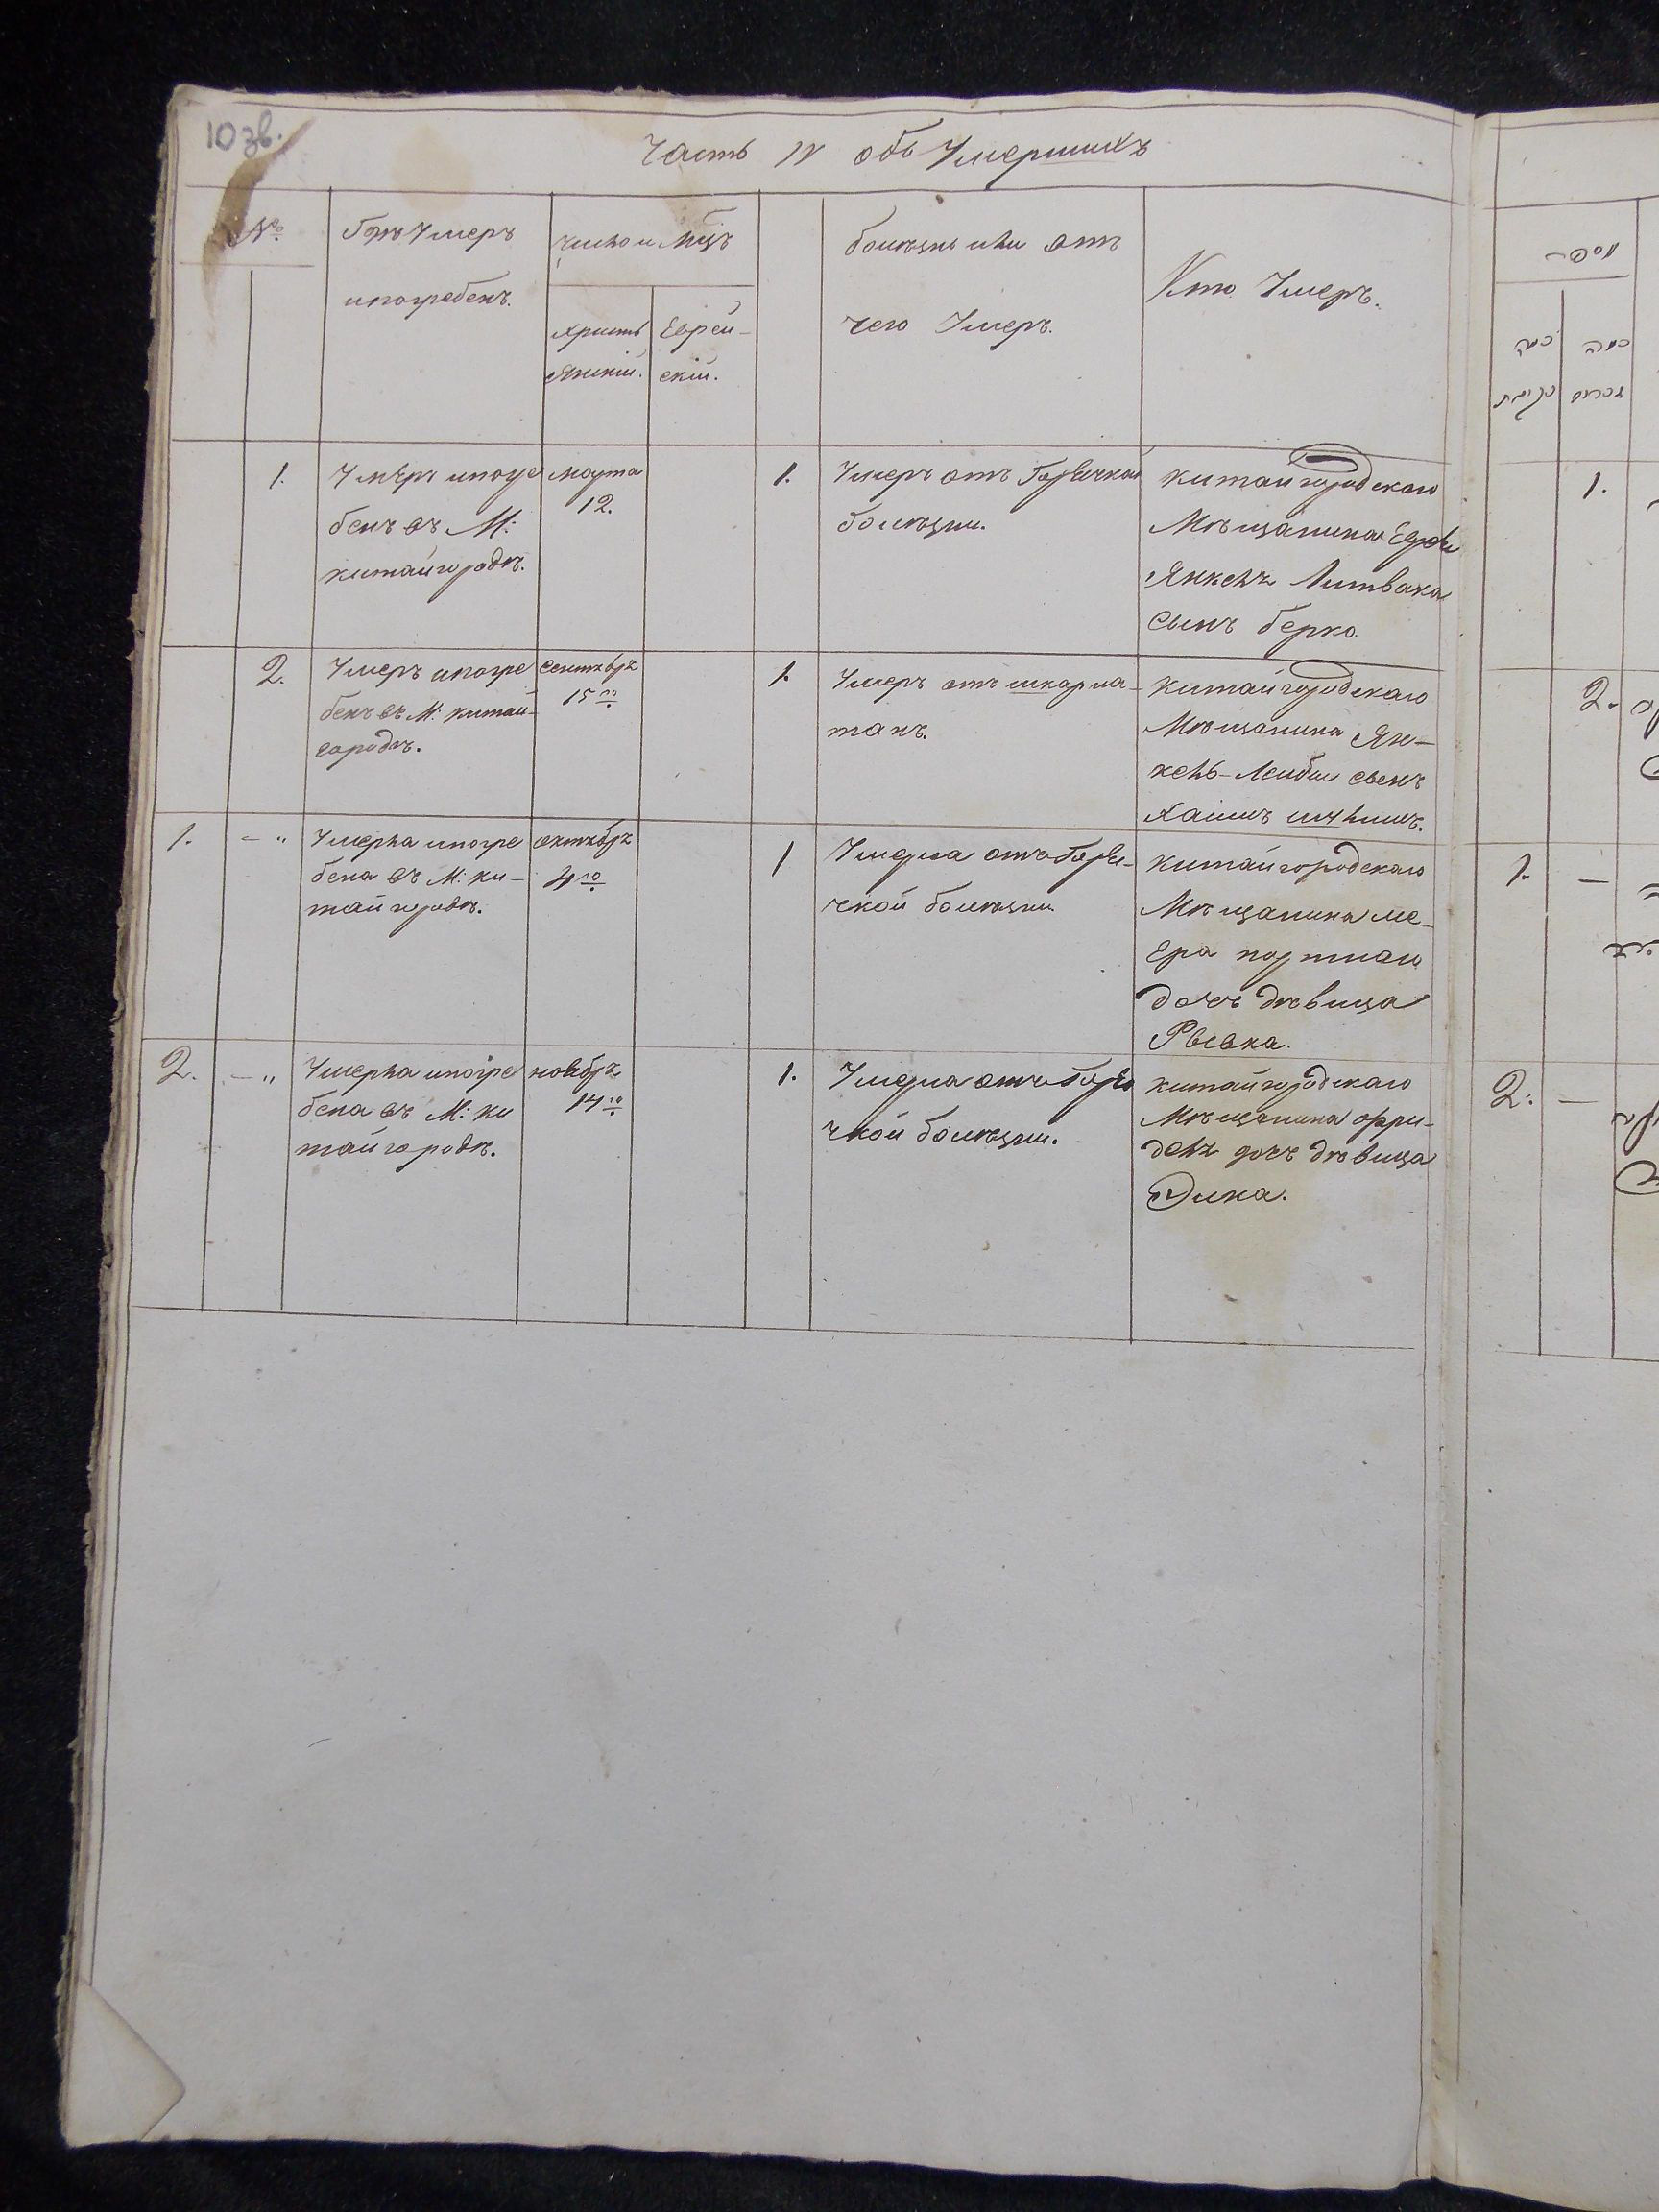 10 зв.
Часть IV объ Умершихъ
№
Гдѣ Умеръ
и погребенъ.
Число и Мцъ
Христь
Янскій.
Еврей-
скій.
болѣзнь или отъ
чего Умеръ.
Кто Умеръ.
1.
Умеръ и погре
бенъ въ М:
китайгородѣ.
марта
12.
1.
Умеръ отъ Горячкой
болѣзни.
китайгородскаго
Мѣщанина
Янкель Литвака
сынъ берко.
2.
Умеръ и погре
бенъ въ М: китай-
городѣ.
сентября
15го
1.
Умеръ отъ шкарла-
танъ.
китайгородскаго
Мѣщанина Ян-
кель-Лейбы сынъ
Хаимъ
1. - "
Умерла и погре
бена въ М: ки-
тайгородѣ.
октября
4го
1
Умерла отъ Горя-
чкой болѣзни
китайгородскаго
Мѣщанина ме-
ера портнаго
дочь дѣвица
Рывка.
2. - "
Умерла и погре
бена въ М: ки
тайгородѣ.
ноября
14го
1.
Умерла отъ Горя
чкой болѣзни.
китайгородскаго
Мѣщанина фри-
дель дочь дѣвица
1.
2.
1. -
2. -